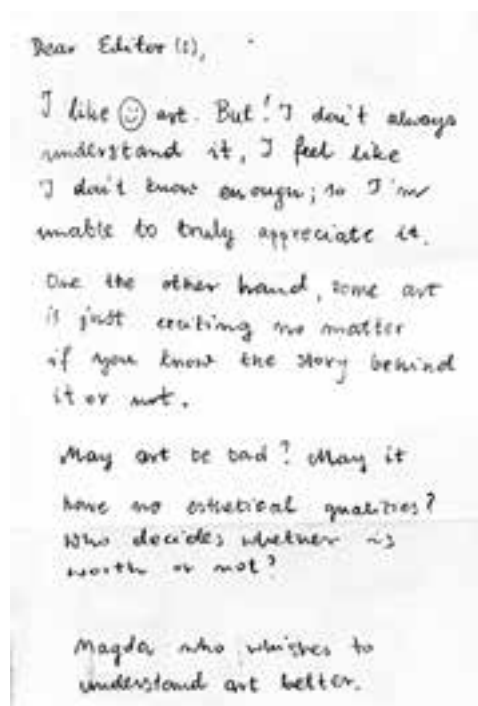 Dear Editor(s),
I like ☺ art. But! I don't always
understand it, I feel like
I don't know enough; so I'm
unable to truly appreciate it.
One the other hand, some art
is just exciting no matter
if you know the story behind
it or not.
May art be bad? May it
have no esthetical qualities?
Who decides whether is
worth or not?
Magda who whishes to
understand art better.